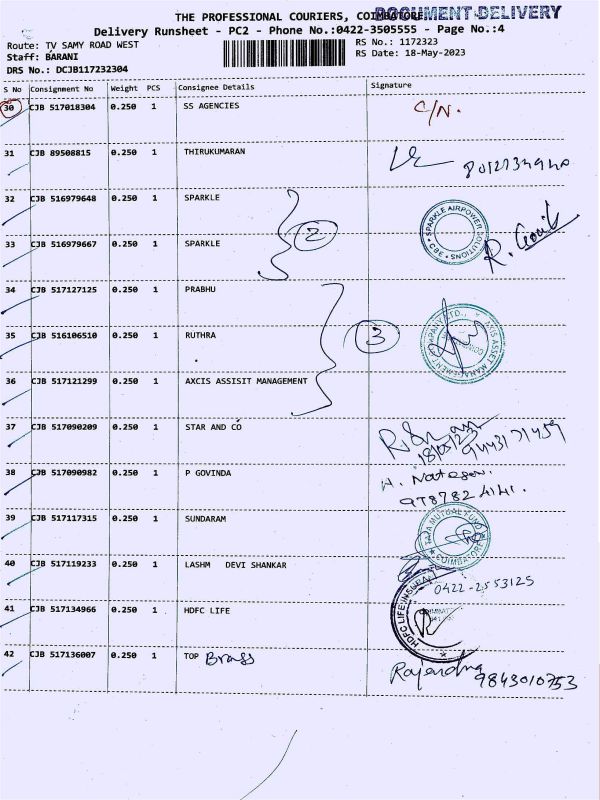 THE PROFESSIONAL COURIERS, COIMBATORE
DOCUMENT DELIVERY
Delivery Runsheet - PC2 - Phone No.:0422-3505555 - Page No.:4
Route: TV SAMY ROAD WEST
RS No.: 1172323
Staff: BARANI
RS Date: 18-May-2023
DRS No.: DCJB117232304
S No Consignment No Weight PCS Consignee Details Signature
30 CJB 517018304 0.250 1 SS AGENCIES C/N.
31 CJB 89508815 0.250 1 THIRUKUMARAN
32 CJB 516979648 0.250 1 SPARKLE
2
SPARKLE AIRPOWER SOLUTIONS * CBE *
33 CJB 516979667 0.250 1 SPARKLE
34 CJB 517127125 0.250 1 PRABHU
35 CJB 516106510 0.250 1 RUTHRA
3
36 CJB 517121299 0.250 1 AXCIS ASSISIT MANAGEMENT
37 CJB 517090209 0.250 1 STAR AND CO
18/05/23
38 CJB 517090982 0.250 1 P GOVINDA
9787824141.
39 CJB 517117315 0.250 1 SUNDARAM
MUTUAL FUND
COIMBATORE
40 CJB 517119233 0.250 1 LASHM DEVI SHANKAR
0422-2553125
41 CJB 517134966 0.250 1 HDFC LIFE
HDFC LIFE INSURANCE
42 CJB 517136007 0.250 1 TOP Brass
Rajendra 9843010753